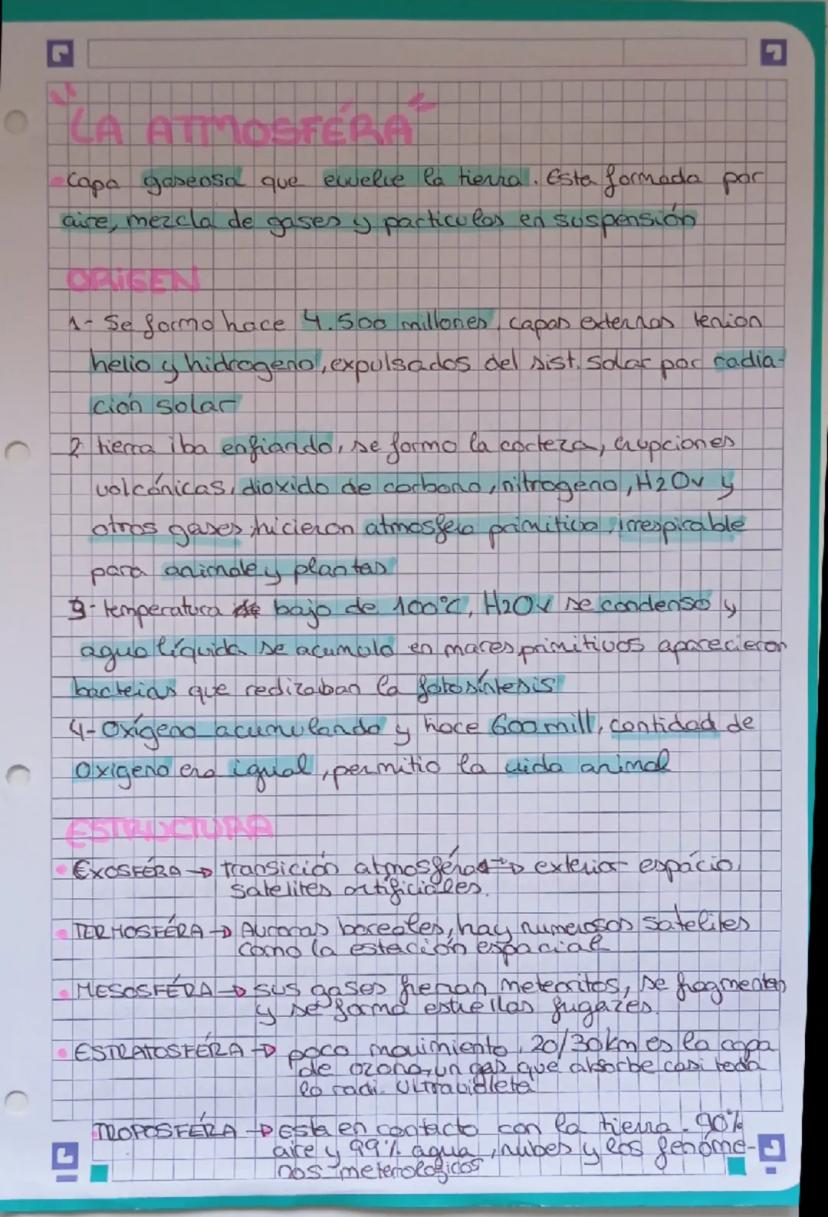 "LA ATMOSFÉRA"
Capa gaseosa que envuelve la tierra. Esta formada por
aire, mezcla de gases y particulas en suspensión
ORIGEN
1- Se formo hace 4.500 millones, capas externas tenian
helio y hidrogeno, expulsados del sist. solar por radia-
ción solar
2 tierra iba enfiando, se formo la corteza, erupciones
volcánicas, dioxido de carbono, nitrogeno, H2Ov y
otros gases, hicieron atmosfera primitiva, irrespirable
para animale y plantas
3- temperatura bajo de 100°C, H2Ov se condenso y
agua líquida se acumulo en mares primitivos aparecieron
bacterias que realizaban la fotosíntesis
4- Oxígeno acumulando y hace 600 mill, cantidad de
Oxigeno era igual, permitio la vida animal
ESTRUCTURA
EXOSFÉRA → transición atmosféra → exterior espacio,
satelites artificiales.
TERMOSFÉRA → Auroras boreales, hay numerosos satelites
como la estación espacial
MESOSFÉRA → sus gases frenan meteoritos, se fragmentan
y se forma estrellas fugazes.
ESTRATOSFÉRA → poco movimiento, 20/30km es la capa
de ozono, un gas que absorbe casi toda
la radi. ultravioleta
TROPOSFÉRA → esta en contacto con la tierra. 90%
aire y 99% agua, nubes y los fenóme-
nos meterologicos